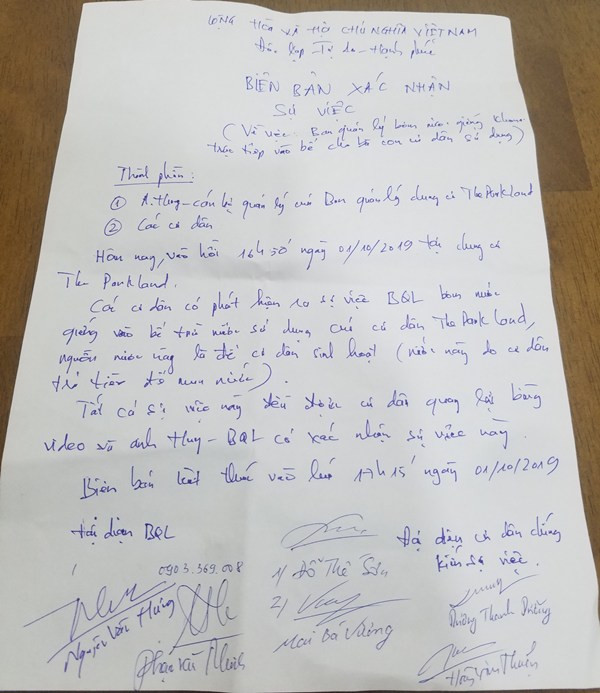 CỘNG HÒA XÃ HỘI CHỦ NGHĨA VIỆT NAM
Độc lập Tự do - Hạnh phúc
BIÊN BẢN XÁC NHẬN
SỰ VIỆC
(Về việc: Ban quản lý bơm nước giếng khoan
trực tiếp vào bể cho bà con cư dân sử dụng)
Thành phần:
① A. Huy - cán bộ quản lý của Ban quản lý chung cư The Parkland
② Các cư dân
Hôm nay, vào hồi 16h30' ngày 01/10/2019 tại chung cư
The Parkland.
Các cư dân có phát hiện ra sự việc BQL bơm nước
giếng vào bể trữ nước sử dụng của cư dân The Park Land,
nguồn nước này là để cư dân sinh hoạt (nước này do cư dân
trả tiền để mua nước).
Tất cả sự việc này đều được cư dân quay lại bằng
video và anh Huy - BQL có xác nhận sự việc này.
Biên bản kết thúc vào lúc 17h15' ngày 01/10/2019
Đại diện BQL
Đại diện cư dân chứng
kiến sự việc.
0903.369.008
1/ Đỗ Thế Sơn
2/
Nguyễn Văn Hưng
Mai Bá Vượng